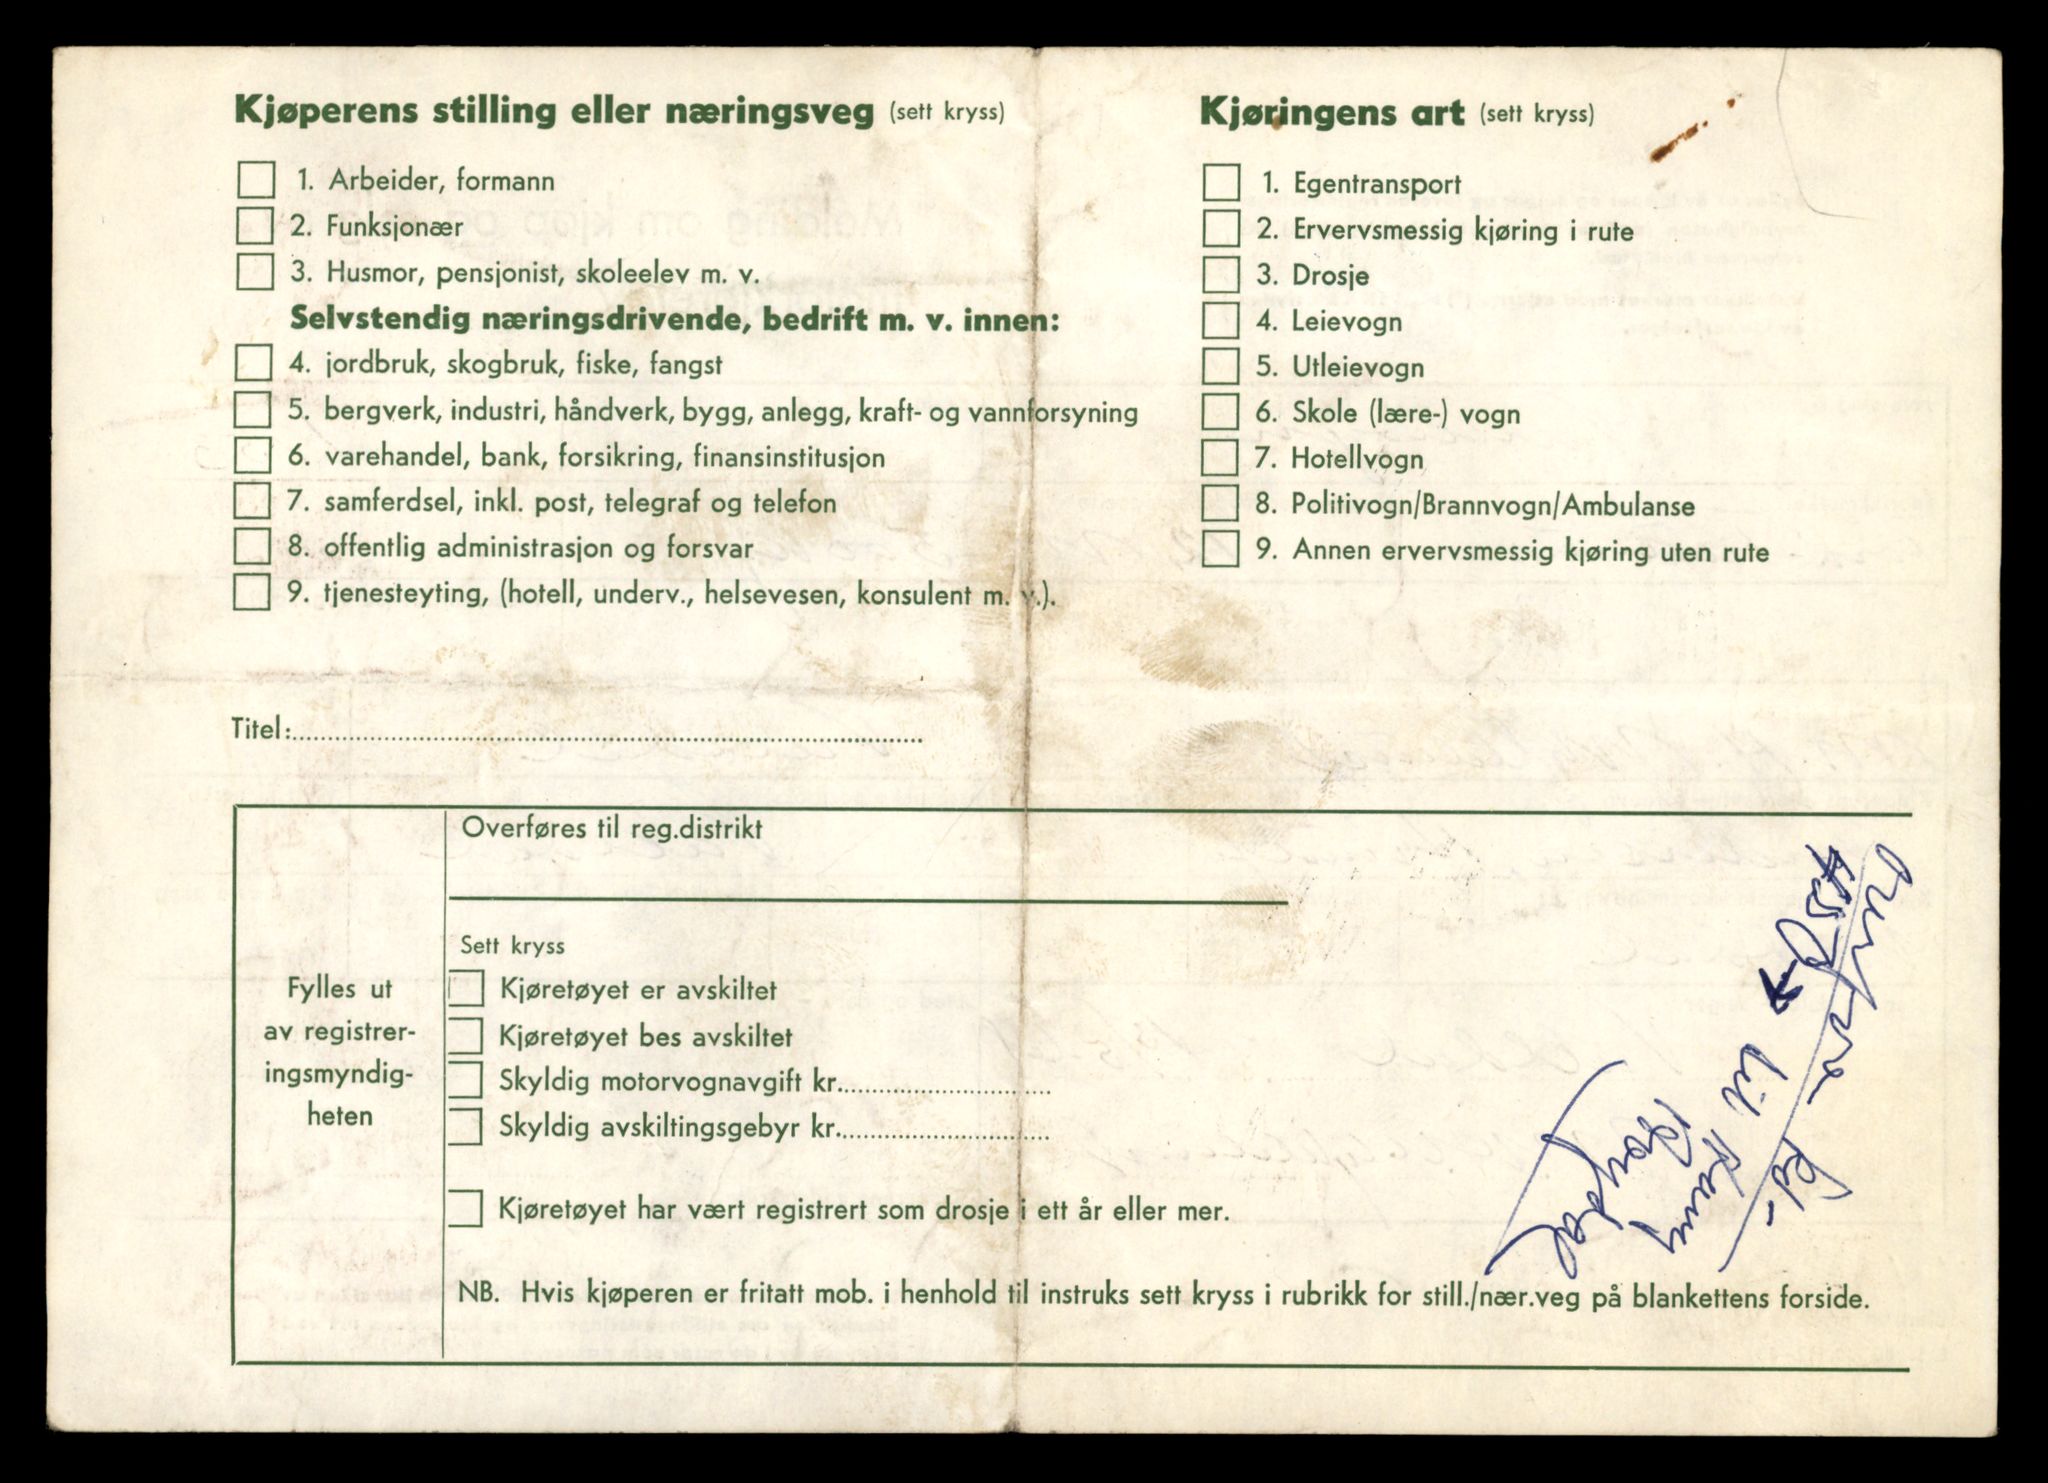 Kjøperens stilling eller næringsveg (sett kryss)
1. Arbeider, formann
2. Funksjonær
3. Husmor, pensjonist, skoleelev m. v.
Selvstendig næringsdrivende, bedrift m. v. innen:
4. jordbruk, skogbruk, fiske, fangst
5. bergverk, industri, håndverk, bygg, anlegg, kraft- og vannforsyning
6. varehandel, bank, forsikring, finansinstitusjon
7. samferdsel, inkl. post, telegraf og telefon
8. offentlig administrasjon og forsvar
9. tjenesteyting, (hotell, underv., helsevesen, konsulent m. v.).
Kjøringens art (sett kryss)
1. Egentransport
2. Ervervsmessig kjøring i rute
3. Drosje
4. Leievogn
5. Utleievogn
6. Skole (lære-) vogn
7. Hotellvogn
8. Politivogn/Brannvogn/Ambulanse
9. Annen ervervsmessig kjøring uten rute
Titel:
Fylles ut
av registrer-
ingsmyndig-
heten
Overføres til reg.distrikt
Sett kryss
Kjøretøyet er avskiltet
Kjøretøyet bes avskiltet
Skyldig motorvognavgift kr.
Skyldig avskiltingsgebyr kr.
Kjøretøyet har vært registrert som drosje i ett år eller mer.
NB. Hvis kjøperen er fritatt mob. i henhold til instruks sett kryss i rubrikk for still./nær.veg på blankettens forside.
til